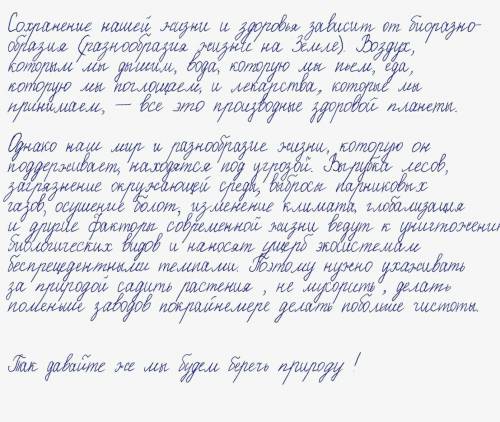 Сохранение нашей жизни и здоровья зависит от биоразно-
образия (разнообразия жизни на Земле). Воздух,
которым мы дышим, вода, которую мы пьем, еда,
которую мы поглощаем, и лекарства, которые мы
принимаем, — все это производные здоровой планеты.

Однако наш мир и разнообразие жизни, которую он
поддерживает, находятся под угрозой. Вырубка лесов,
загрязнение окружающей среды, выбросы парниковых
газов, осушение болот, изменение климата, глобализация
и другие факторы современной жизни ведут к уничтожению
биологических видов и наносят ущерб экосистемам
беспрецедентными темпами. Поэтому нужно ухаживать
за природой садить растения , не мусорить , делать
поменьше заводов покрайнемере делать побольше чистоты.

Так давайте же мы будем беречь природу !